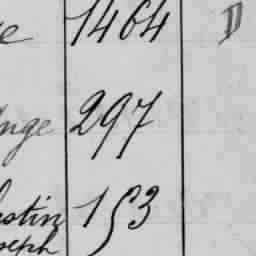 e 1464 D
Ange 297
estin 153
oseph